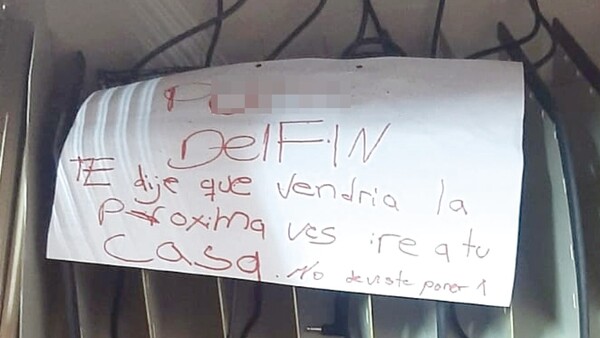 DelFIN
TE dije que vendria la
Proxima ves ire a tu
casa. No deviste poner